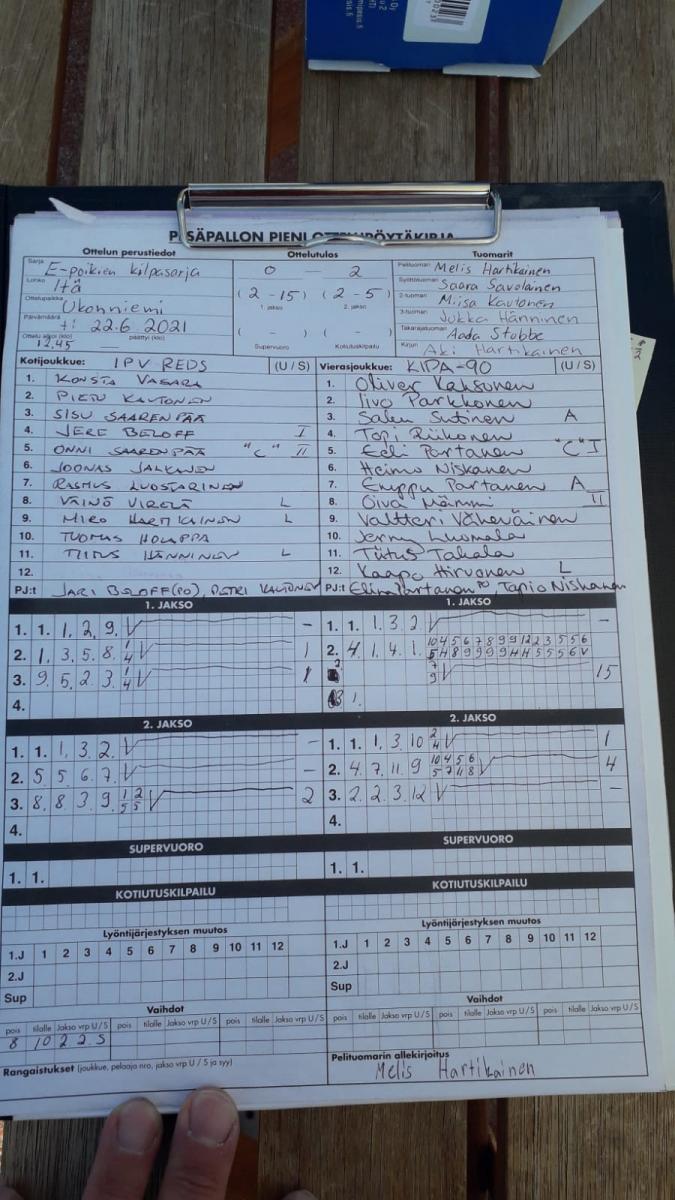 PESÄPALLON PIENI OTTELUPÖYTÄKIRJA
Ottelun perustiedot
Sarja E-poikien kilpasarja
Lohko Itä
Ottelupaikka Ukonniemi
Päivämäärä ti 22.6 2021
Ottelu alkoi (klo) 12.45 päättyi (klo)
Ottelutulos
0 — 2
(2 - 15) (2 - 5)
1. jakso 2. jakso
( - ) ( - )
Supervuoro Kotiutuskilpailu
Tuomarit
Pelituomari Melis Hartikainen
Syöttötuomari Saara Savolainen
2-tuomari Miisa Kautonen
3-tuomari Jukka Hänninen
Takarajatuomari Aada Stubbe
Kirjuri Aki Hartikainen
Kotijoukkue: IPV REDS (U / S)
1. KONSTA VASARA
2. PIETU KAUTONEN
3. SISU SAARENPÄÄ
4. JERE BELOFF I
5. ONNI SAARENPÄÄ "C" II
6. JOONAS JALKANEN
7. RASMUS LUOSTARINEN
8. VÄINÖ VIRELÄ L
9. MIRO HARTIKAINEN L
10. TUOMAS HOLAPPA
11. TIITUS HÄNNINEN L
12.
PJ:t JARI BELOFF (PO), PETRI KAUTONEN
Vierasjoukkue: KIPA-90 (U / S)
1. Oliver Kaksonen
2. Iivo Parkkonen
3. Saku Sutinen A
4. Topi Riikonen
5. Eeli Partanen "C" I
6. Heimo Niskanen
7. Emppu Partanen A
8. Oiva Mämmi II
9. Valtteri Väheväinen
10. Jerry Luomala
11. Tiitus Takala
12. Kaapo Hirvonen L
PJ:t Elina Partanen PO, Tapio Niskanen
1. JAKSO
1. 1. 1. 2. 9. V —
2. 1. 3. 5. 8. 1/4 V 1
3. 9. 5. 2. 3. 1/4 V 1
4.
1. JAKSO
1. 1. 1. 3. 2. V —
2. 4. 1. 4. 1. 10 4 5 6 7 8 9 9 12 2 3 5 5 6
5 4 8 9 9 9 9 4 4 5 5 5 6 V
7/9 V 15
2. JAKSO
1. 1. 1. 3. 2. V —
2. 5. 5. 6. 7. V —
3. 8. 8. 3. 9. 1/5 2/5 V 2
4.
2. JAKSO
1. 1. 1. 3. 10 2/4 V 1
2. 4. 7. 11. 9 10/5 4/7 5/4 6/8 V 4
3. 2. 2. 3. 12 V —
4.
SUPERVUORO
1. 1.
SUPERVUORO
1. 1.
KOTIUTUSKILPAILU
KOTIUTUSKILPAILU
Lyöntijärjestyksen muutos
1.J 1 2 3 4 5 6 7 8 9 10 11 12
2.J
Sup
Lyöntijärjestyksen muutos
1.J 1 2 3 4 5 6 7 8 9 10 11 12
2.J
Sup
Vaihdot
pois tilalle Jakso vrp U / S pois tilalle Jakso vrp U / S pois tilalle Jakso vrp U / S
8 10 2 2 S
Vaihdot
pois tilalle Jakso vrp U / S pois tilalle Jakso vrp U / S pois tilalle Jakso vrp U / S
Rangaistukset (joukkue, pelaaja nro, jakso vrp U / S ja syy)
Pelituomarin allekirjoitus
Melis Hartikainen